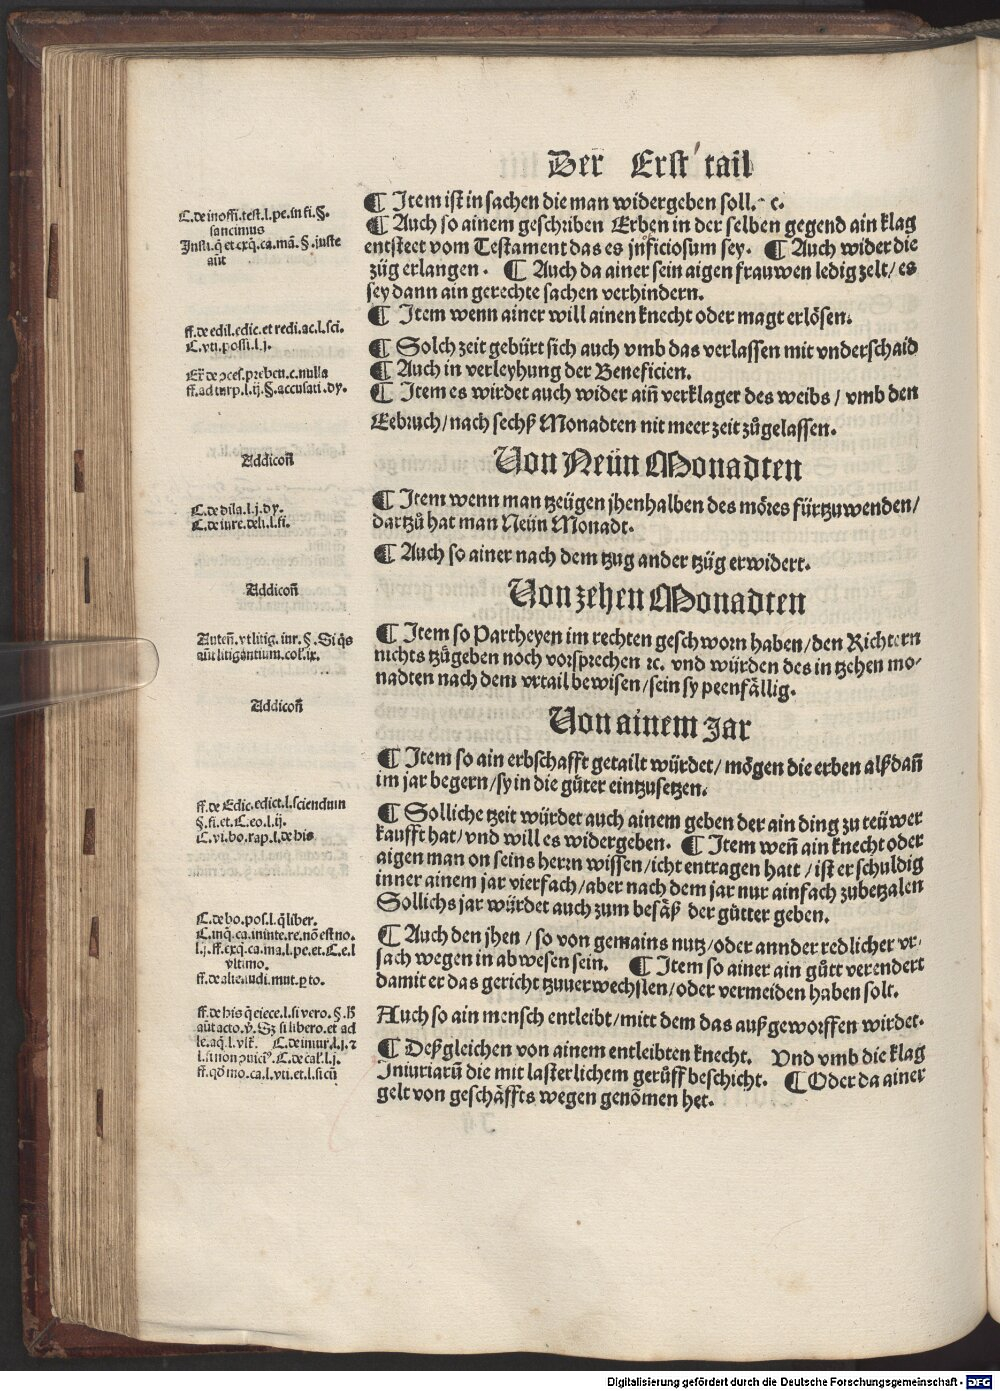 Der Erst tail
C. de inoffi. test. l. pe. in fi. §.
sancimus
Insti. q̄ et exq̄. ca. mā. §. iuste
aūt
¶ Item ist in sachen die man widergeben soll. ꝛc.
¶ Auch so ainem geschriben Erben in der selben gegend ain klag
entsteet vom Testament das es jnficiosum sey. ¶ Auch wider die
züg erlangen. ¶ Auch da ainer sein aigen frauwen ledig zelt/ es
sey dann ain gerechte sachen verhindern.
¶ Item wenn ainer will ainen knecht oder magt erlösen.
ff. de edil. edic. et redi. ac. l. sci.
C. vti. possi. l. j.
¶ Solch zeit gebürt sich auch vmb das verlassen mit vnderschaid
¶ Auch in verleyhung der Beneficien.
Ex̄ de ꝯces. preben. c. nulla
ff. ad turp. l. ij. §. accusati. dy.
¶ Item es wirdet auch wider ain̄ verklager des weibs / vmb den
Eebruch/ nach sechß Monadten nit meer zeit zůgelassen.
Addicon̄
Von Neün Monadten
C. de dila. l. j. dy.
C. de iure. deli. l. fi.
¶ Item wenn man tzeügen jhenhalben des mőres fürtzuwenden/
dartzů hat man Neün Monadt.
¶ Auch so ainer nach dem tzug ander tzüg erwidert.
Addicon̄
Von zehen Monadten
Auten̄. vt litig. iur. §. Si q̄s
aūt litigantium. col. ix.
¶ Item so Partheyen im rechten geschworn haben/ den Richtern
nichts tzůgeben noch vorsprechen ꝛc. vnd würden des in tzehen mo-
nadten nach dem vrtail bewisen/ sein sy peenfällig.
Addicon̄
Von ainem Jar
¶ Item so ain erbschafft getailt würdet/ mőgen die erben alßdan̄
im jar begern/ sy in die güter eintzusetzen.
ff. de Edic. edict. l. sciendum
§. fi. et. C. eo. l. ij.
C. vi. bo. rap. l. de his
¶ Solliche tzeit würdet auch ainem geben der ain ding zu teüwer
kaufft hat/ vnd will es widergeben. ¶ Item wen̄ ain knecht oder
aigen man on seins herrn wissen/ icht entragen hatt / ist er schuldig
inner ainem jar vierfach/ aber nach dem jar nur ainfach zubetzalen
Sollichs jar würdet auch zum besäß der gütter geben.
C. de bo. pos. l. q̄ liber.
C. inq̄. ca. in inte. re. nō est no.
l. j. ff. exq̄. ca. ma. l. pe. et. C. e. l
vltimo.
ff. de alie. iudi. mut. ꝑ to.
¶ Auch den jhen / so von gemains nutz/ oder annder redlicher vr-
sach wegen in abwesen sein. ¶ Item so ainer ain gůtt verendert
damit er das gericht tzuuerwechslen/ oder vermeiden haben solt.
ff. de his q̄ eiece. l. si vero. §. h̄
aūt acto. ꝟ. Sz si libero. et ad
le. aq̄. l. vlt̄. C. de iniur. l. j. ꝛ
l. si non ꝯuici. C. de cal. l. j.
ff. qd mo. ca. l. vti. et. l. si cū
Auch so ain mensch entleibt/ mitt dem das außgeworffen wirdet.
¶ Deßgleichen von ainem entleibten knecht. Vnd vmb die klag
Iniuriarū die mit lasterlichem gerůff beschicht. ¶ Oder da ainer
gelt von geschäffts wegen genōmen het.
Digitalisierung gefördert durch die Deutsche Forschungsgemeinschaft - DFG